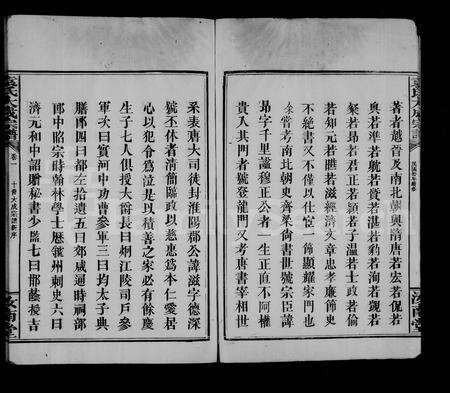 著者越晉及南北朝與隋唐若宏若侃若
奧若準若毓若賁若湛若豹若洵若覬若
粲若昂若君正若穎若子溫若士政若倫
若知元若贍若滋經濟若久章忠孝廉節史
不絕書又不僅以仕宦一節顯耀家門也
余嘗考南北朝史齊擧尚書世號宗臣諱
昂字千里諡穆正公者生正直不阿權
貴入其門者號登龍門又考唐書宰相世
系表唐大司徒封淮陽郡公諱滋字德深
號丕休者清簡臨政以慈惠爲本仁愛居
心以苛令爲泣是以積善之家必有餘慶
生子七人俱授大爵長曰炯江陵司戶參
軍次曰寳河中功曹參軍三曰均太子典
膳郎四曰都左拾遺五曰郊咸通時祠部
郎中昭宗時翰林學士歷虢州刺史六曰
濟元和中詔贈秘書少監七曰邯蔭授吉
袁氏大成宗譜
卷一
汝南堂